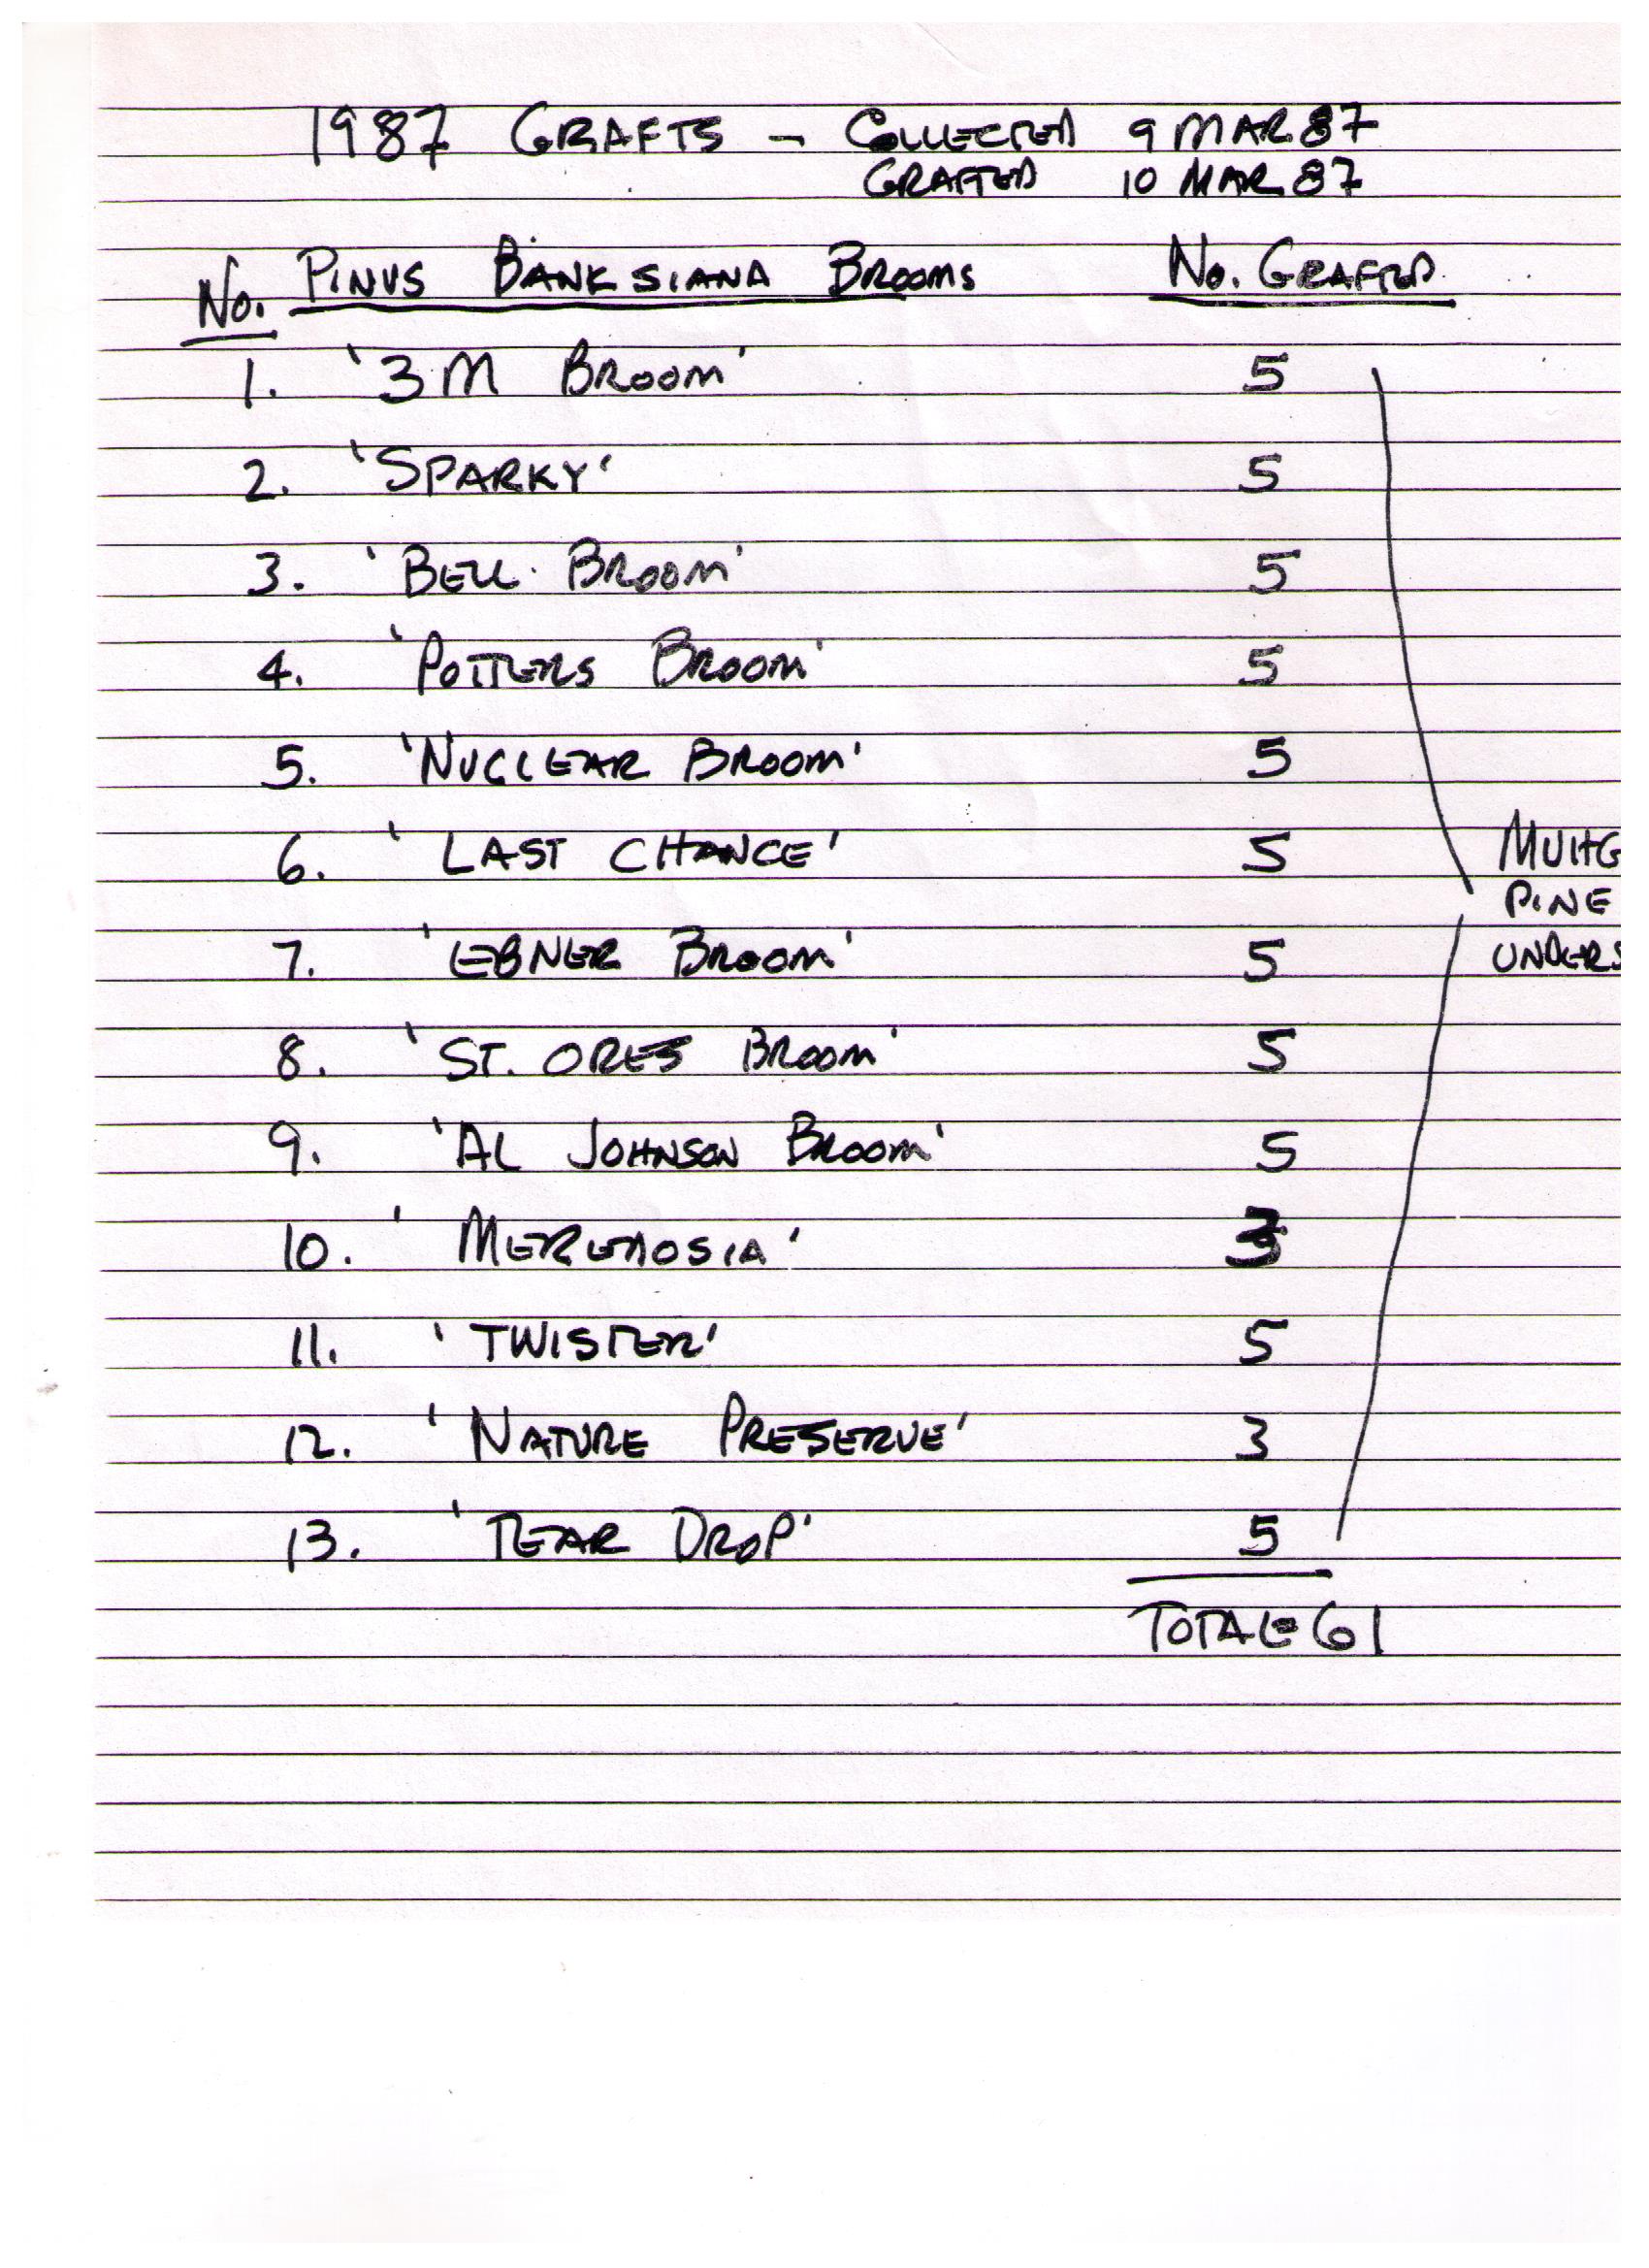 1987 GRAFTS - COLLECTED 9 MAR 87
GRAFTED 10 MAR 87
No. PINUS BANKSIANA BROOMS No. GRAFTED
1. '3M BROOM' 5
2. 'SPARKY' 5
3. 'BELL BROOM' 5
4. 'POTTERS BROOM' 5
5. 'NUCLEAR BROOM' 5
6. 'LAST CHANCE' 5
MUHG
PINE
7. 'EBNER BROOM' 5
UNDERS
8. 'ST. ORES BROOM' 5
9. 'AL JOHNSON BROOM' 5
10. 'MEREDOSIA' 3
11. 'TWISTER' 5
12. 'NATURE PRESERVE' 3
13. 'TEAR DROP' 5
TOTAL=61